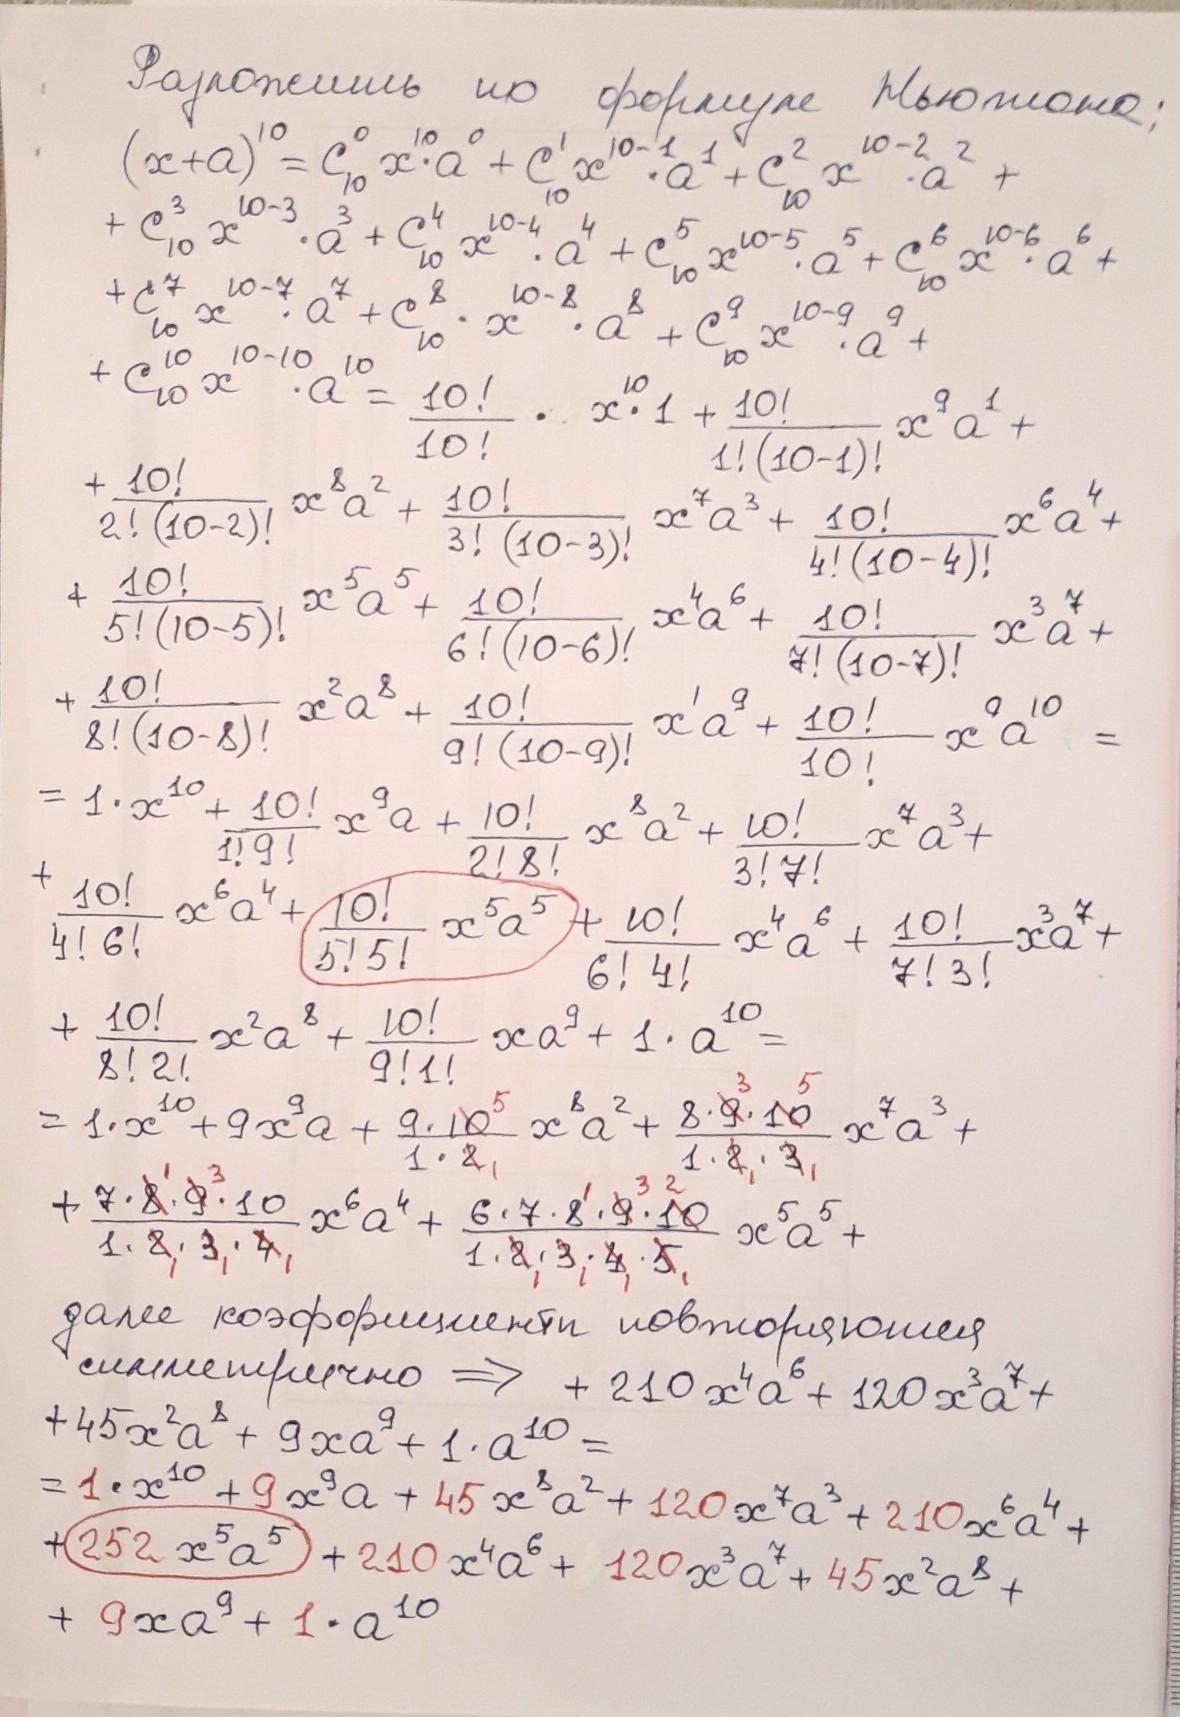 Разложить по формуле Ньютона:
(x+a)^10 = C_10^0 x^10·a^0 + C_10^1 x^(10-1)·a^1 + C_10^2 x^(10-2)·a^2 +
+ C_10^3 x^(10-3)·a^3 + C_10^4 x^(10-4)·a^4 + C_10^5 x^(10-5)·a^5 + C_10^6 x^(10-6)·a^6 +
+ C_10^7 x^(10-7)·a^7 + C_10^8 · x^(10-8)·a^8 + C_10^9 x^(10-9)·a^9 +
+ C_10^10 x^(10-10)·a^10 = 10!/10! · x^10·1 + 10!/(1!(10-1)!) x^9a^1 +
+ 10!/(2!(10-2)!) x^8a^2 + 10!/(3!(10-3)!) x^7a^3 + 10!/(4!(10-4)!) x^6a^4 +
+ 10!/(5!(10-5)!) x^5a^5 + 10!/(6!(10-6)!) x^4a^6 + 10!/(7!(10-7)!) x^3a^7 +
+ 10!/(8!(10-8)!) x^2a^8 + 10!/(9!(10-9)!) x^1a^9 + 10!/10! x^9a^10 =
= 1·x^10 + 10!/(1!9!) x^9a + 10!/(2!8!) x^8a^2 + 10!/(3!7!) x^7a^3 +
+ 10!/(4!6!) x^6a^4 + 10!/(5!5!) x^5a^5 + 10!/(6!4!) x^4a^6 + 10!/(7!3!) x^3a^7 +
+ 10!/(8!2!) x^2a^8 + 10!/(9!1!) xa^9 + 1·a^10 =
= 1·x^10 + 9x^9a + (9·10)/(1·2) x^8a^2 + (8·9·10)/(1·2·3) x^7a^3 +
+ (7·8·9·10)/(1·2·3·4) x^6a^4 + (6·7·8·9·10)/(1·2·3·4·5) x^5a^5 +
далее коэффициенты повторяются
симметрично ⇒ + 210x^4a^6 + 120x^3a^7 +
+ 45x^2a^8 + 9xa^9 + 1·a^10 =
= 1·x^10 + 9x^9a + 45x^8a^2 + 120x^7a^3 + 210x^6a^4 +
+ 252x^5a^5 + 210x^4a^6 + 120x^3a^7 + 45x^2a^8 +
+ 9xa^9 + 1·a^10